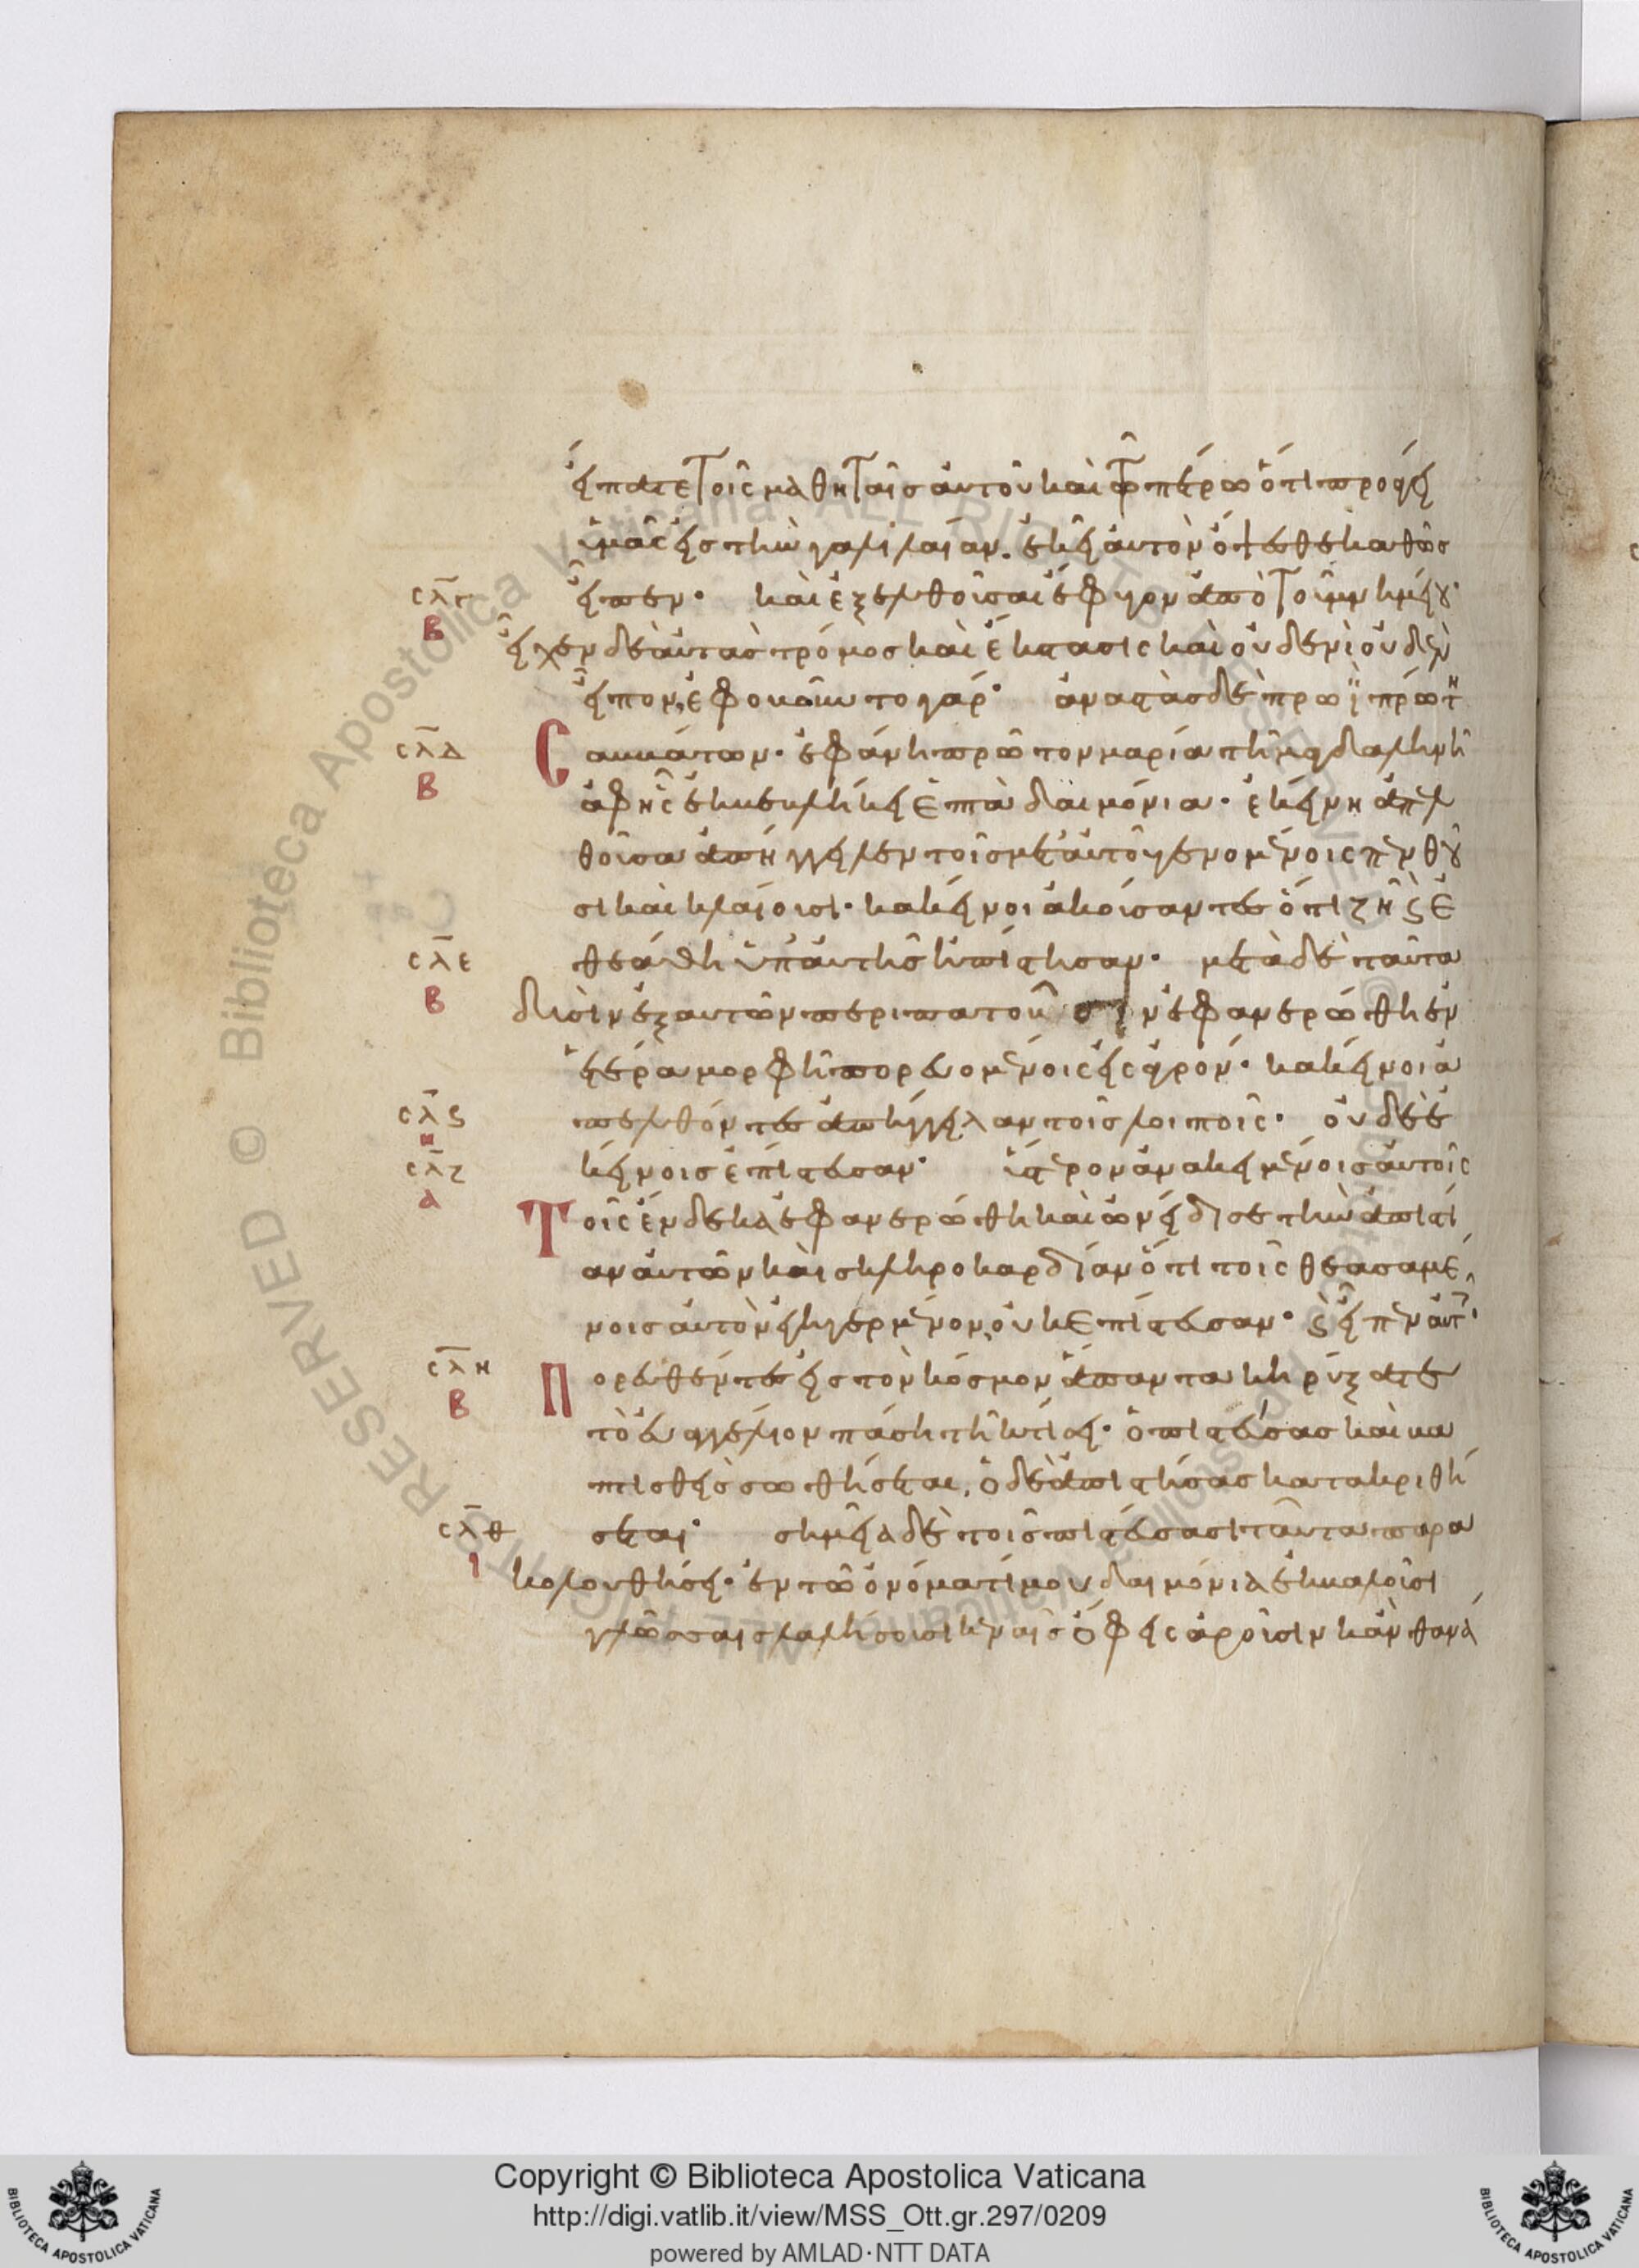 εἴπατε τοῖς μαθηταῖς αὐτοῦ καὶ τῷ πέτρω ὅτι προάγει
ὑμᾶς εἰς τὴν γαλιλαίαν. ἐκεῖ αὐτὸν ὄψεσθε καθὼς
σλγ εἶπεν· καὶ ἐξελθοῦσαι ἔφυγον ἀπὸ τοῦ μνημείου·
Β
εἶχεν δὲ αὐτὰς τρόμος καὶ ἔκστασις καὶ οὐδενὶ οὐδὲν
εἶπον, ἐφοβοῦντο γάρ· ἀναστὰς δὲ πρωῒ πρώτη
σλδ Σαββάτων· ἐφάνη πρῶτον μαρία τῆ μαγδαληνῆ
Β
ἀφ' ἧς ἐκβεβλήκει ἑπτὰ δαιμόνια· ἐκείνη ἀπελ
θοῦσα ἀπήγγειλεν τοῖς μετ' αὐτοῦ γενομένοις πενθοῦ
σι καὶ κλαίουσι· κακεῖνοι ἀκούσαντες ὅτι ζῆ καὶ ἐ
σλε θεάθη ὑπ' αὐτῆς ἠπίστησαν· μετὰ δὲ ταῦτα
Β
δυσὶν ἐξ αὐτῶν περιπατοῦσιν ἐφανερώθη ἐν
ἑτέρα μορφῆ πορευομένοις εἰς ἀγρόν· κακεῖνοι ἀ
σλς πελθόντες ἀπήγγειλαν τοῖς λοιποῖς· οὐδὲ ἐ
Η
σλζ κείνοις ἐπίστευσαν· ὕστερον ἀνακειμένοις αὐτοῖς
Α
Τοῖς ἕνδεκα ἐφανερώθη καὶ ὠνείδισε τὴν ἀπιστί
αν αὐτῶν καὶ σκληροκαρδίαν ὅτι τοῖς θεασαμέ
νοις αὐτὸν ἐγηγερμένον, οὐκ ἐπίστευσαν· καὶ εἶπεν αὐτοῖς·
σλη Πορευθέντες εἰς τὸν κόσμον ἅπαντα κηρύξατε
Β
τὸ εὐαγγέλιον πάση τῆ κτίσει· ὁ πιστεύσας καὶ βα
πτισθεὶς σωθήσεται, ὁ δὲ ἀπιστήσας κατακριθή
σλθ σεται· σημεῖα δὲ τοῖς πιστεύσασι ταῦτα παρα
Ι
κολουθήσει· ἐν τῶ ὀνόματί μου δαιμόνια ἐκβαλοῦσι
γλώσσαις λαλήσουσι κεναῖς ὄφεις ἀροῦσιν κἂν θανά
Copyright © Biblioteca Apostolica Vaticana
http://digi.vatlib.it/view/MSS_Ott.gr.297/0209
powered by AMLAD·NTT DATA